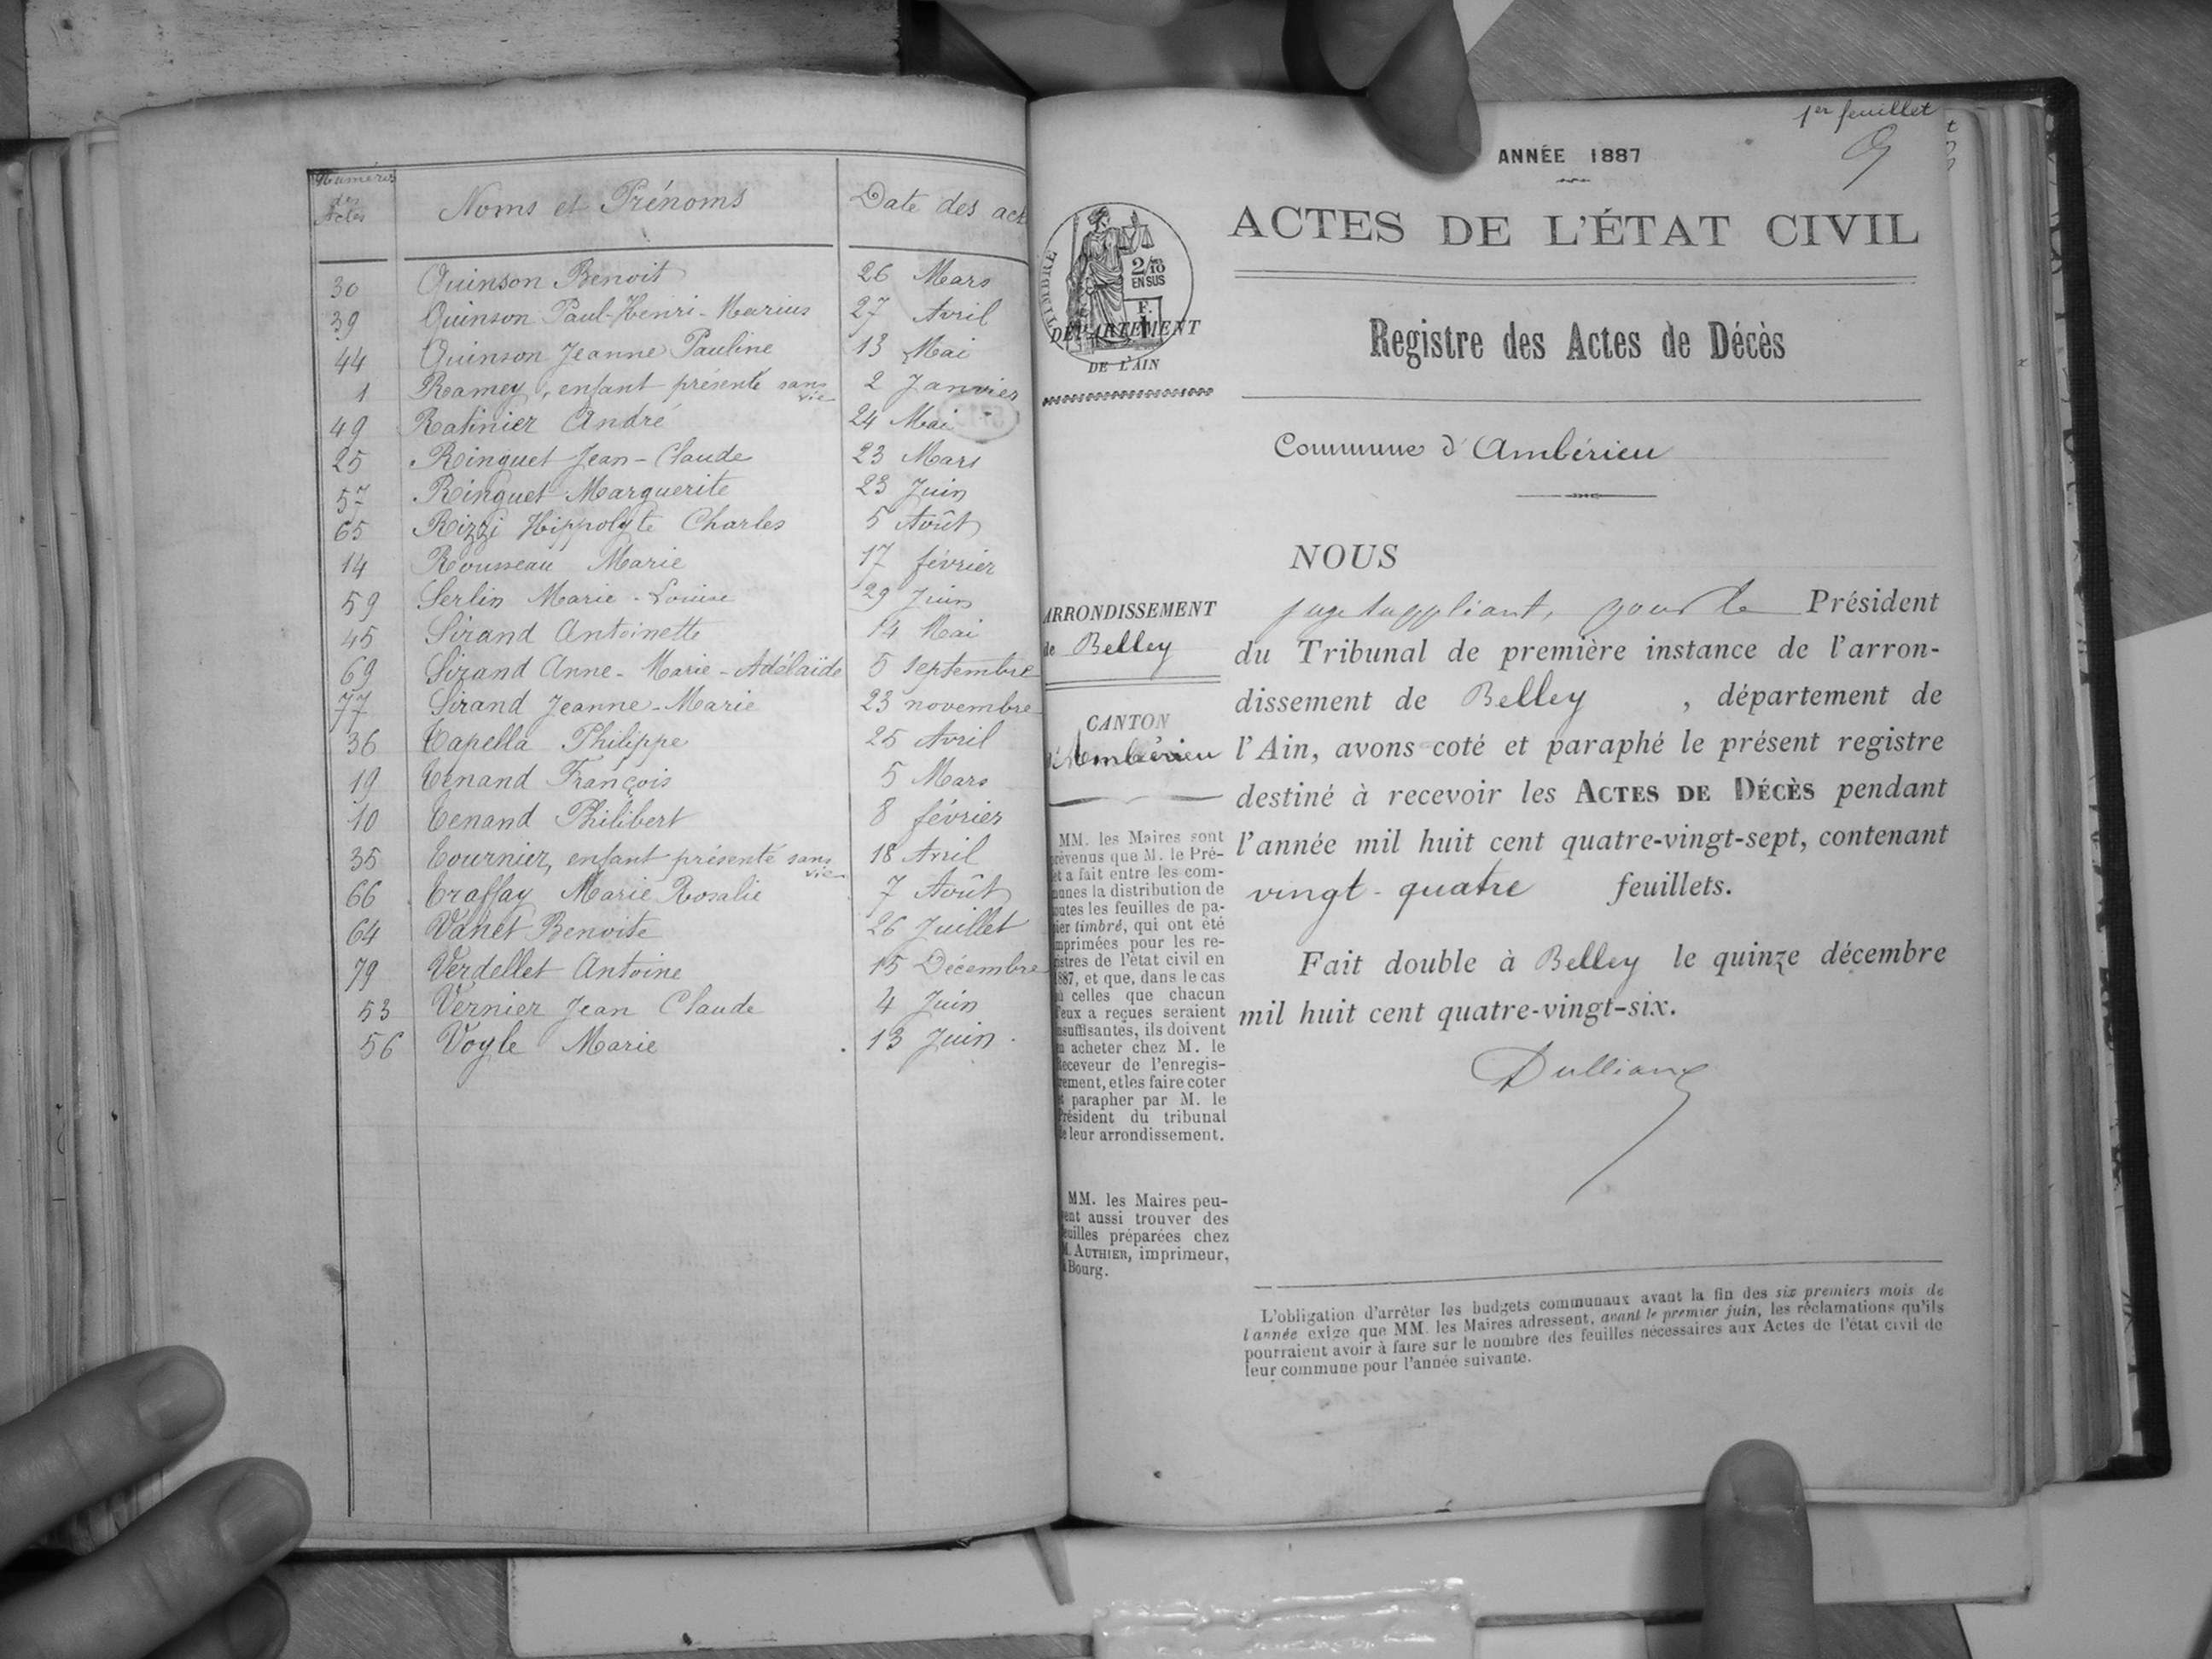 Numéros
des
Actes
Noms et Prénoms
Date des act
30 Quinson Benoit 26 Mars
39 Quinson Paul-Henri-Marius 27 Avril
44 Quinson Jeanne Pauline 13 Mai
1 Ramey, enfant présenté sans vie 2 Janvier
49 Ratinier André 24 Mai
25 Ringuet Jean-Claude 23 Mars
57 Ringuet Marguerite 23 Juin
65 Rizzi Hippolyte Charles 5 Août
14 Rousseau Marie 17 février
59 Serlin Marie-Louise 29 Juin
45 Sirand Antoinette 14 Mai
69 Sirand Anne-Marie-Adélaïde 5 septembre
77 Sirand Jeanne-Marie 23 novembre
36 Tapella Philippe 25 Avril
19 Tenand François 5 Mars
10 Tenand Philibert 8 février
35 Tournier, enfant présenté sans vie 18 Avril
66 Traffay Marie Rosalie 7 Août
64 Vanet Benoite 26 Juillet
79 Verdellet Antoine 15 Décembre
53 Vernier Jean Claude 4 Juin
56 Voyle Marie 13 Juin
1er feuillet
ANNÉE 1887
ACTES DE L'ÉTAT CIVIL
TIMBRE
2/10
EN SUS
F.
1
DÉPARTEMENT
DE L'AIN
Registre des Actes de Décès
Commune d'Ambérieu
ARRONDISSEMENT
de Belley
CANTON
d'Ambérieu
MM. les Maires sont
prévenus que M. le Pré-
et a fait entre les com-
munes la distribution de
toutes les feuilles de pa-
pier timbré, qui ont été
imprimées pour les re-
gistres de l'état civil en
1887, et que, dans le cas
où celles que chacun
d'eux a reçues seraient
insuffisantes, ils doivent
en acheter chez M. le
Receveur de l'enregis-
rement, et les faire coter
et parapher par M. le
Président du tribunal
de leur arrondissement.
MM. les Maires peu-
vent aussi trouver des
feuilles préparées chez
M. AUTHIER, imprimeur,
à Bourg.
NOUS
juge suppléant, pour le Président
du Tribunal de première instance de l'arron-
dissement de Belley , département de
l'Ain, avons coté et paraphé le présent registre
destiné à recevoir les ACTES DE DÉCÈS pendant
l'année mil huit cent quatre-vingt-sept, contenant
vingt-quatre feuillets.
Fait double à Belley le quinze décembre
mil huit cent quatre-vingt-six.
L'obligation d'arrêter les budgets communaux avant la fin des six premiers mois de
l'année exige que MM. les Maires adressent, avant le premier juin, les réclamations qu'ils
pourraient avoir à faire sur le nombre des feuilles nécessaires aux Actes de l'état civil de
leur commune pour l'année suivante.